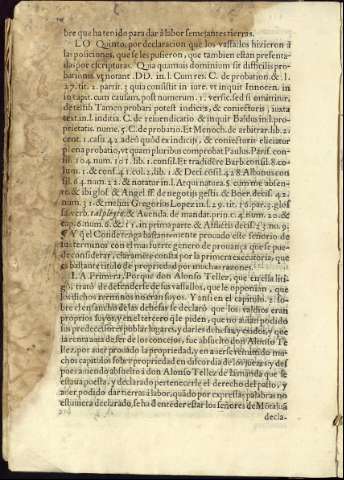 bre que ha tenido para dar à labor semejantes tierras.
LO Quinto, por declaracion que los vassallos hizieron â
las posiciones, que se les pusieron, que tambien estan presenta-
das por escripturas. Quia quamuis dominium sit difficilis pro-
bationis, vt notant .DD. in.l. Cum res. C. de probation.& .l.
27. tit. 2. partit. 3 quia consistit in iure. vt inquit Innocen. in
to capit. cum causam, post numerum. 1. versic. sed si
de testib. Tamen probari potest indicijs, & coniecturis, iuxta
text.in.l. indicia. C. de reiuendicatio & inquit Baldus in.l. pro-
prietatis. nume. 5. C. de probatio. Et Menoch. de arbitrar. lib. 2
cent. 1. casu 42 adeò quòd ex indicijs, & coniecturis elicitur
plena probatio, vt quam pluribus comprobat Paulus. Paris. con-
sil. 104. num. 101. lib. 1. consil. Et tradidere Barb. consil. 8. co-
lum. 1. & conf. 41. col. 2. lib. 1 & Deci. consil 428 Albonus con
sil 64. num. 22. & notatur in.l. Arquitura §. cum me absen-
te, & ibi glos. & Angel. ff. de negotijs gestis & Boer. decisi. 42.
num. 31. & melius Gregorius Lopez in.l. 29. tit. 16. par. 3. glos-
sa verb. & Auenda. de mandat. prin. c. 4. num. 20. &
cap. 6. num. 6. & 15. in prima parte & Afflictis decisi. 23. no. 9.
Y que el Conde tenga bastantemente prouado este señorio de
los terminos con el mas fuerte genero de prouança que se pue-
de considerar, claramente consta por la primera executoria, que
es bastante titulo de propiedad por muchas razones.
LA Primera, Porque don Alonso Tellez, que en esta liti-
gio, tratò de defenderse de sus vassallos, que le opponian, que
los dichos terminos no eran suyos. Y ansi en el capitulo. 2. so-
bre el ensancho de las dehesas se declarò que los valdios eran
proprios suyos, y en el tercero que piden, que no aurian podido
sus predecessores poblar lugares, y darles dehesas, y exidos, y que
la renta auia de ser de los concejos, fue absuelto don Alonso Te-
llez, por auer prouado la propriedad, y en auerse remitido mu-
chos capitulos sobre propriedad en discordia de los juezes, y des
pues auiendo absuelto à don Alonso Tellez de la manda que se
estaua puesta, y declarado pertenecerle el derecho del pasto, y
auer podido dar tierras à labor, quãdo por expressas palabras no
estuuiera declarado, se ha d entẽder estar los señores de Motalua
decla-